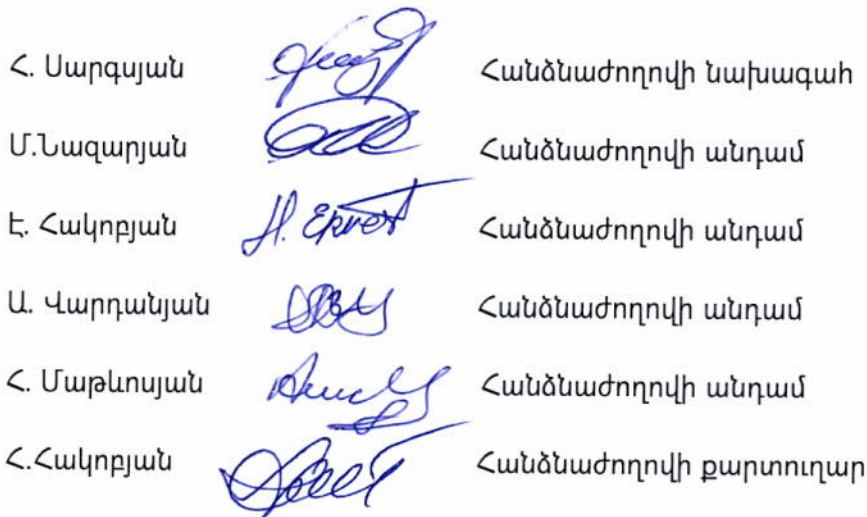 Հ. Սարգսյան Հանձնաժողովի նախագահ
Մ.Նազարյան Հանձնաժողովի անդամ
Է. Հակոբյան H. Ернест Հանձնաժողովի անդամ
Ա. Վարդանյան Հանձնաժողովի անդամ
Հ. Մաթևոսյան Հանձնաժողովի անդամ
Հ.Հակոբյան Հանձնաժողովի քարտուղար